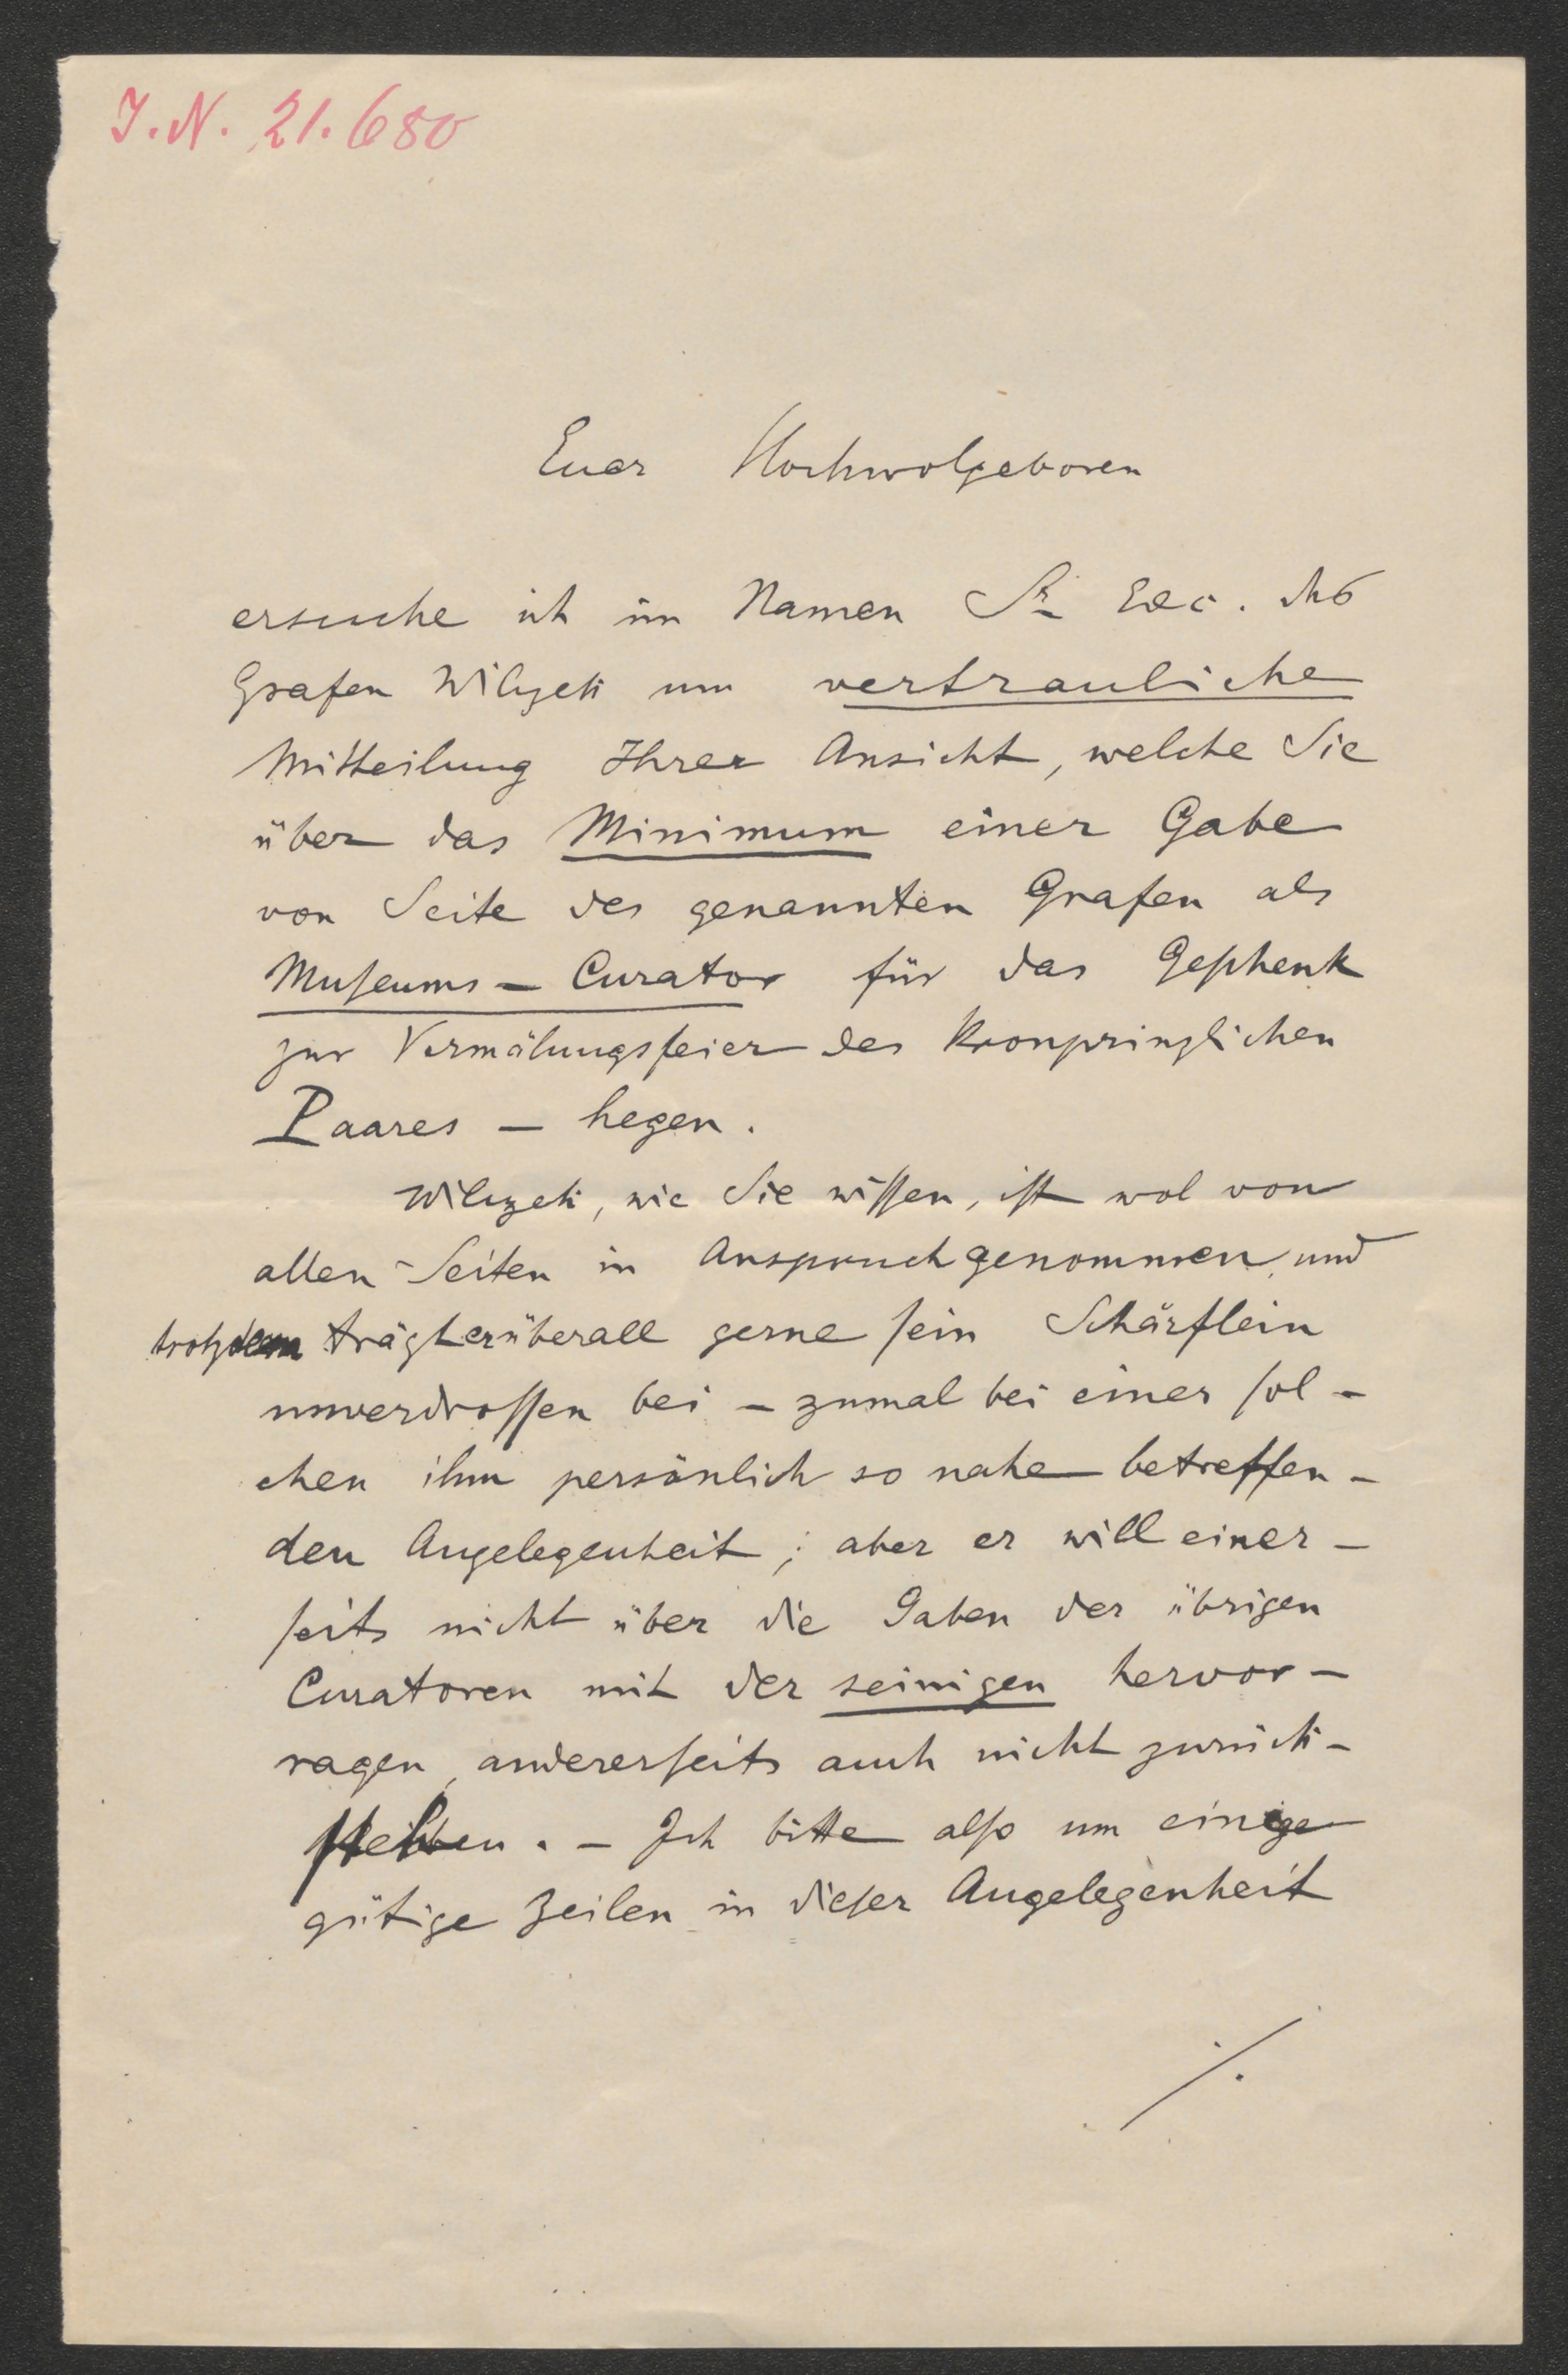 I.N. 21.680
Euer Hochwolgeboren
ersuche ich im Namen Sr Exc. des
Grafen Wilczek um vertrauliche
Mitteilung Ihrer Ansicht, welche Sie
über das Minimum einer Gabe
von Seite des genannten Grafen als
Museums - Curator für das Geschenk
zur Vermälungsfeier des Kronprinzlichen
Paares - hegen.
Wilczek, wie Sie wissen, ist wol von
allen Seiten in Anspruch genommen, und
trotzdem trägt er überall gerne sein Schärflein
unverdrossen bei - zumal bei einer sol -
chen ihm persönlich so nahe betreffen -
den Angelegenheit; aber er will einer -
seits nicht über die Gaben der übrigen
Curatoren mit der seinigen hervor -
ragen, andererseits auch nicht zurück -
stehen. - Ich bitte also um einige
gütige Zeilen in dieser Angelegenheit
./.